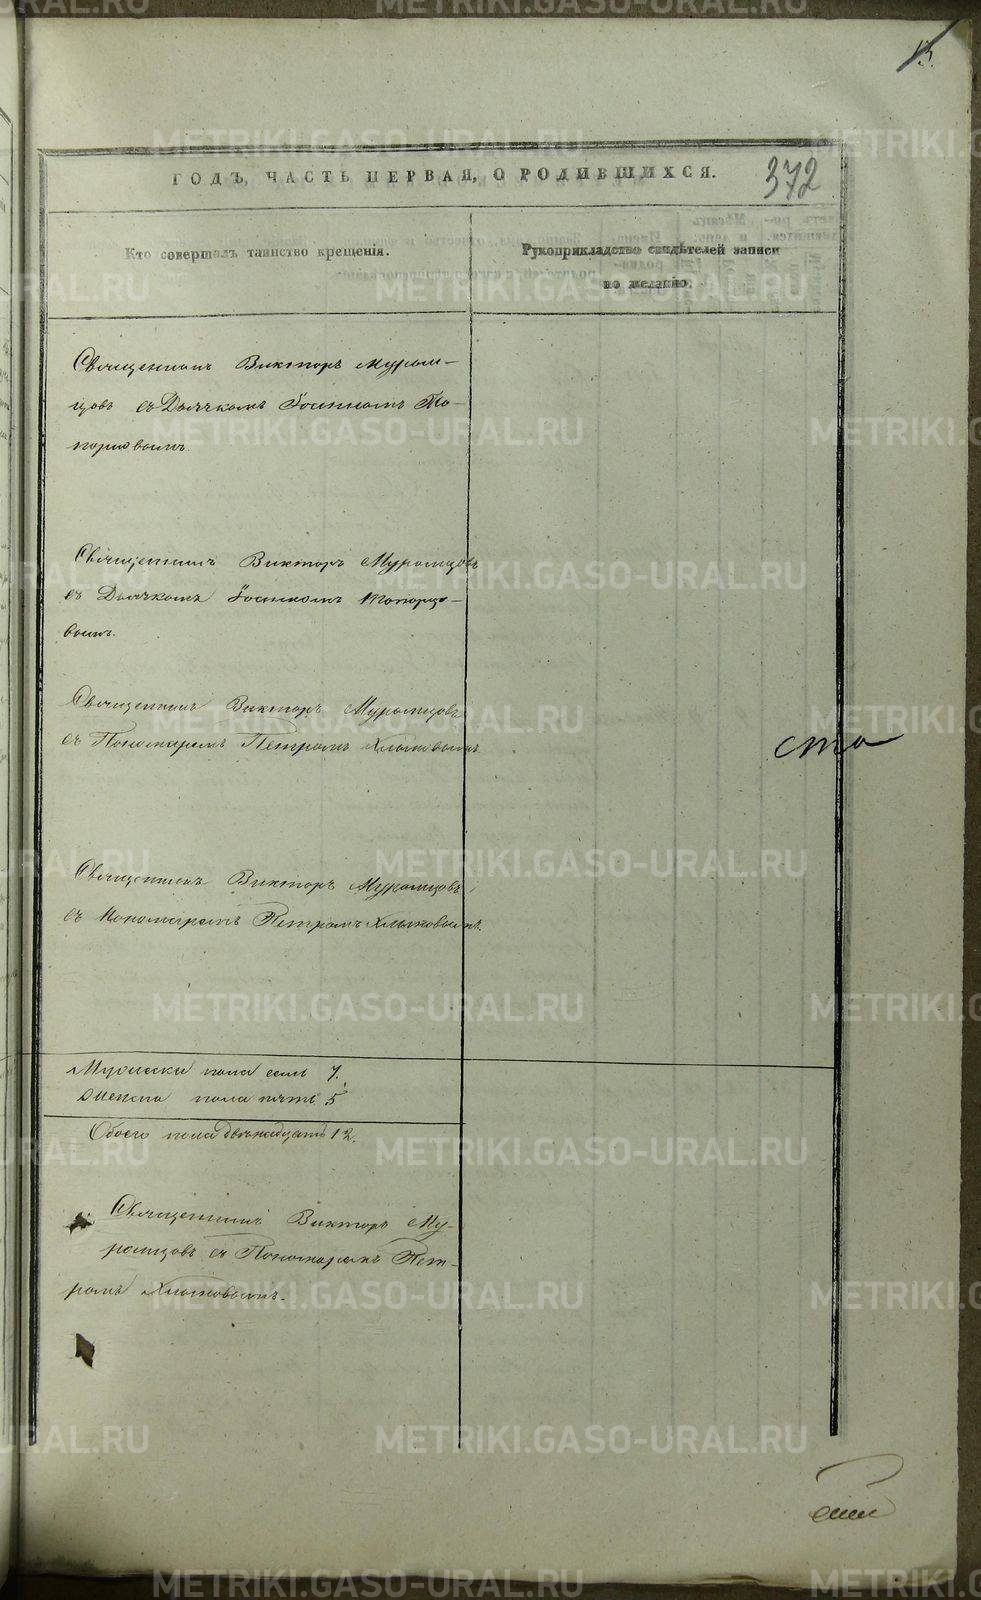 13.
ГОДЪ, ЧАСТЬ ПЕРВАЯ, О РОДИВШИХСЯ.
372
Кто совершалъ таинство крещенія.
Рукоприкладство свидѣтелей записи
по желанію.
Священникъ Викторъ Муром-
цовъ съ Дьячкомъ Іоанномъ То-
порковымъ.
Священникъ Викторъ Муромцовъ
съ Дьячкомъ Іоанномъ Топорко-
вымъ.
Священникъ Викторъ Муромцовъ
съ Пономаремъ Петромъ Хлыновымъ
ста
Священникъ Викторъ Муромцовъ
съ Пономаремъ Петромъ Хлыновымъ.
Мужеска пола семь 7.
Женска пола пять 5
Обоего пола двѣнадцать 12.
Священникъ Викторъ Му-
ромцовъ съ Пономаремъ Пет-
ромъ Хлыновымъ.
METRIKI.GASO-URAL.RU